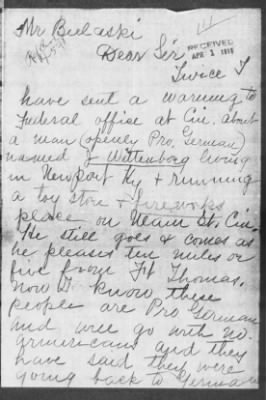 Mr Bielaski
RECEIVED
APR 1 1918
Dear Sir
Twice I
have sent a warning to
Federal office at Cin. about
a man (openly Pro. German)
named J Wittenborg living
in Newport Ky + running
a toy store + fireworks
place on Main St. Cin.
He still goes & comes as
he pleases ten miles or
five from Ft Thomas.
Now I know these
people are Pro German
and will go with no
Americans and they
have said they were
going back to German